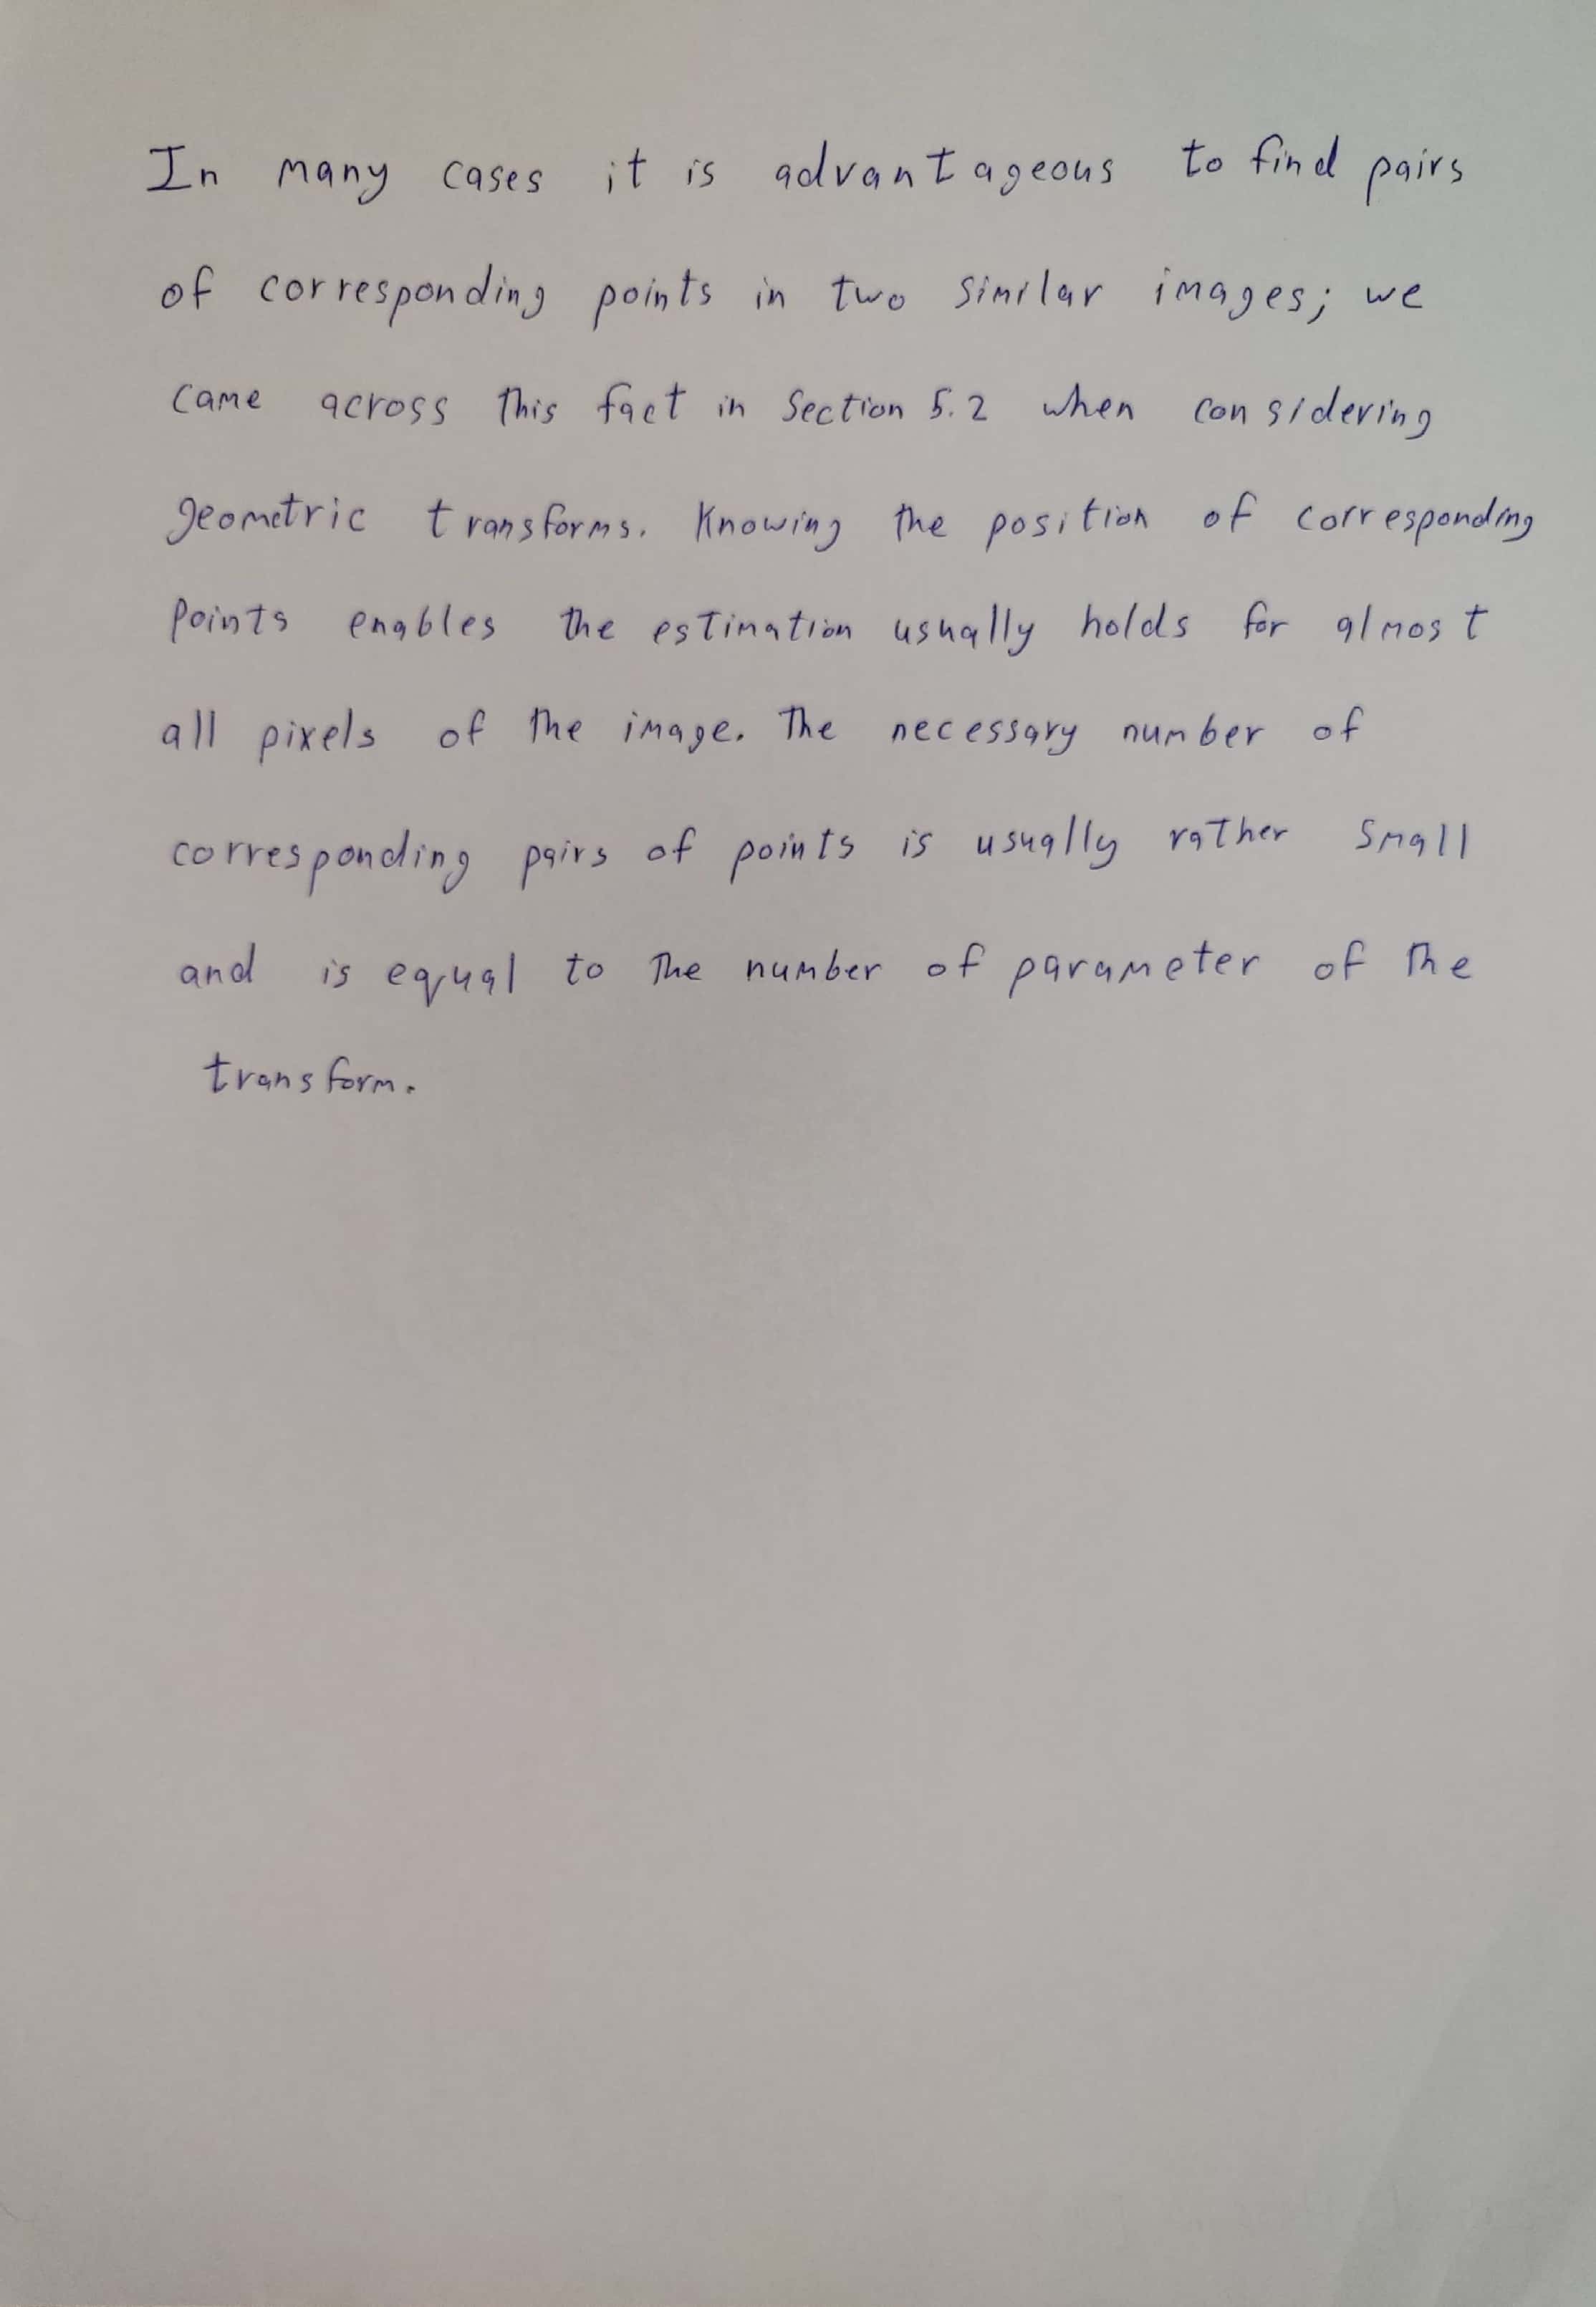 In many cases it is advantageous to find pairs
of corresponding points in two similar images; we
came across this fact in Section 5.2 when considering
geometric transforms. Knowing the position of corresponding
points enables the estimation usually holds for almost
all pixels of the image. The necessary number of
corresponding pairs of points is usually rather small
and is equal to the number of parameter of the
transform.